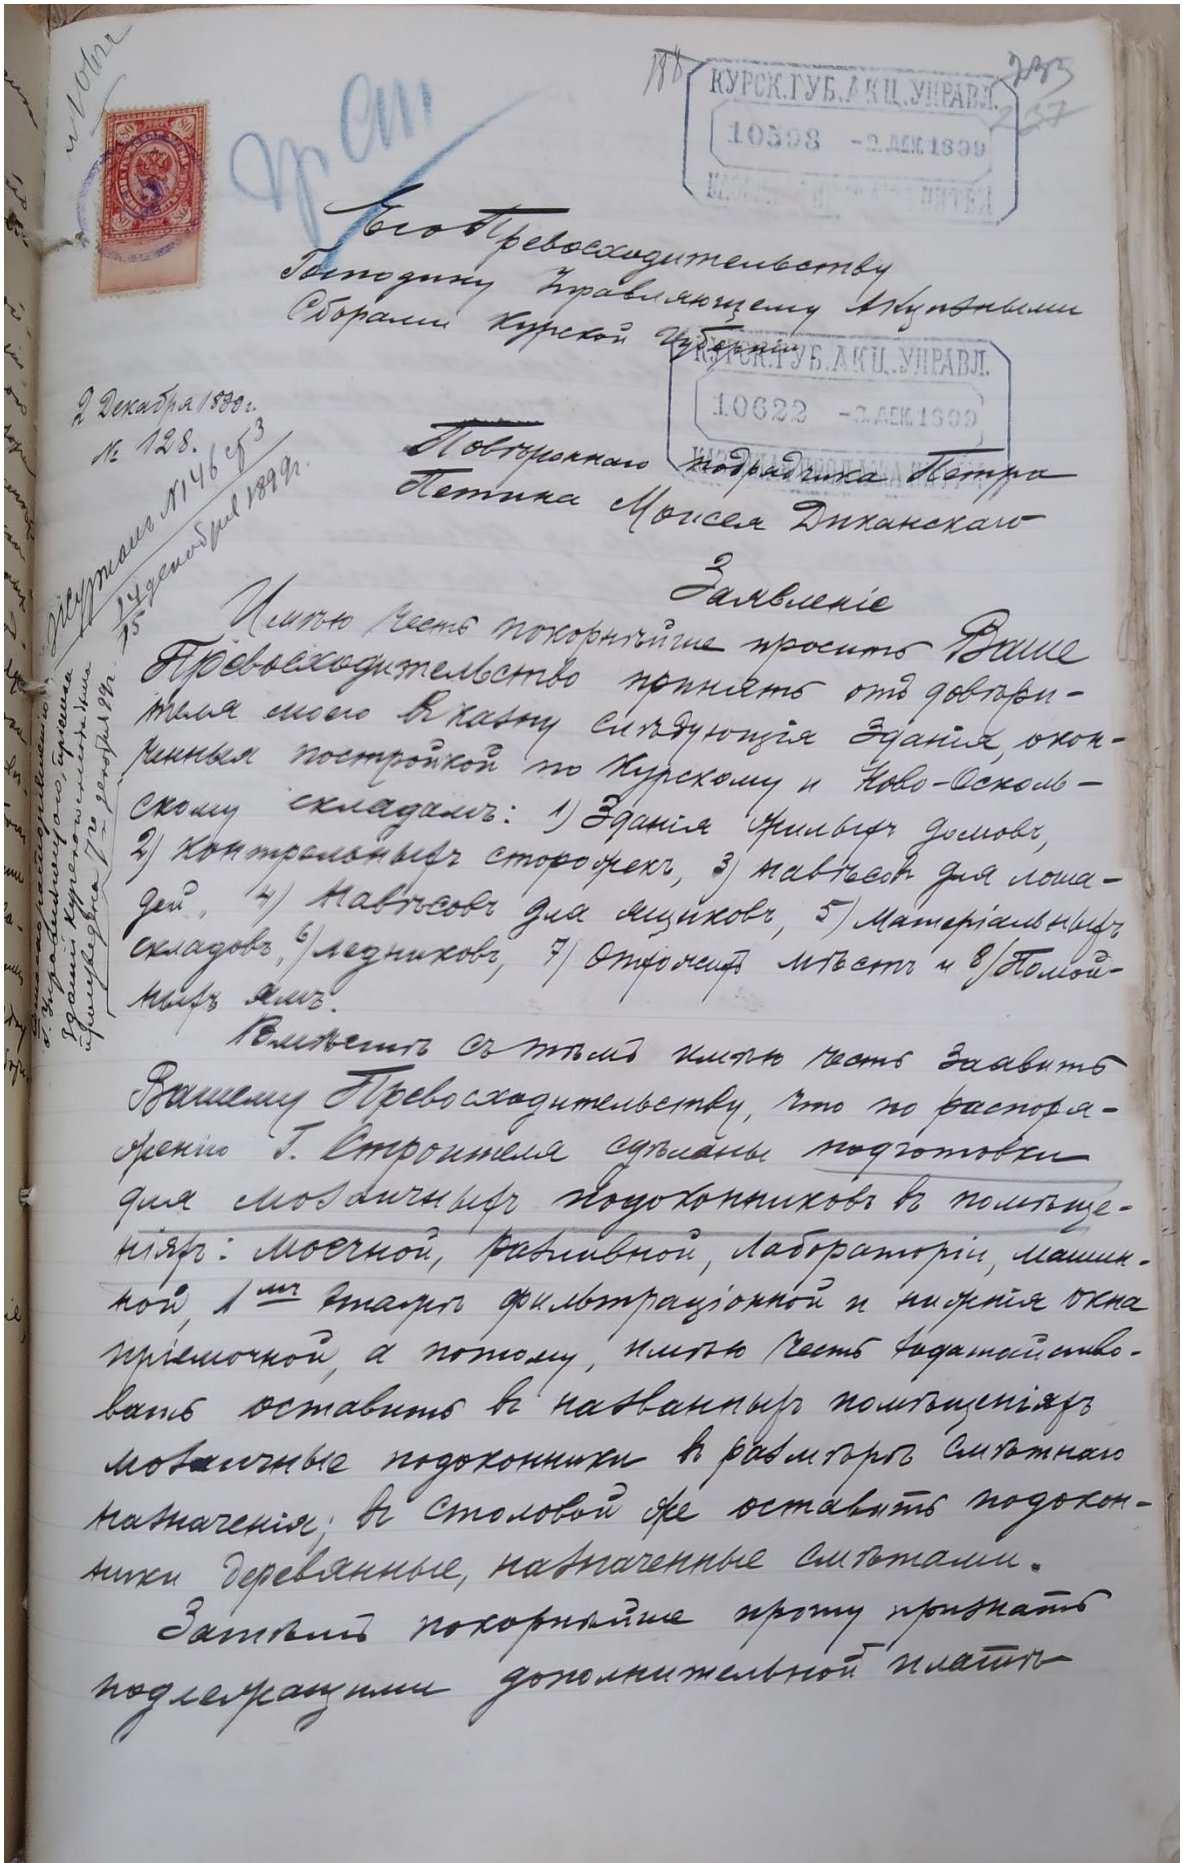 188
КУРСК.ГУБ.АКЦ.УПРАВЛ.
10598 -2.ДЕК.1899
235
237
80 80
Его Превосходительству
Господину Управляющему Акцизными
Сборами Курской Губерніи
КУРСК.ГУБ.АКЦ.УПРАВЛ.
10622 -3.ДЕК.1899
2 Декабря 1899 г.
№ 128.
Журналъ № 146 ст 3
14/15 декабря 1899 г.
Повѣреннаго подрядчика Петра
Петина Моисея Диканскаго
Заявленіе
Имѣю честь покорнѣйше просить Ваше
Превосходительство принять отъ довѣри-
теля моего въ казну слѣдующія зданія, окон-
ченныя постройкой по Курскому и Ново-Осколь-
скому складамъ: 1) Зданія жилыхъ домовъ,
2) контрольныхъ сторожекъ, 3) навѣсовъ для лоша-
дей, 4) навѣсовъ для ящиковъ, 5) матеріальныхъ
складовъ, 6) ледниковъ, 7) Отхожихъ мѣстъ и 8) Помой-
ныхъ ямъ.
Вмѣстѣ съ тѣмъ имѣю честь заявить
Вашему Превосходительству, что по распоря-
женію Г. Строителя сдѣланы подготовки
для мозаичныхъ подоконниковъ въ помѣще-
ніяхъ: моечной, разливной, лабораторіи, машин-
ной, 1мъ этажѣ фильтраціонной и нижнія окна
пріемочной, а потому, имѣю честь ходатайство-
вать оставить въ названныхъ помѣщеніяхъ
мозаичные подоконники въ размѣрѣ смѣтнаго
назначенія; въ столовой же оставить подокон-
ники деревянные, назначенные смѣтами.
Затѣмъ покорнѣйше прошу признать
подлежащими дополнительной платѣ